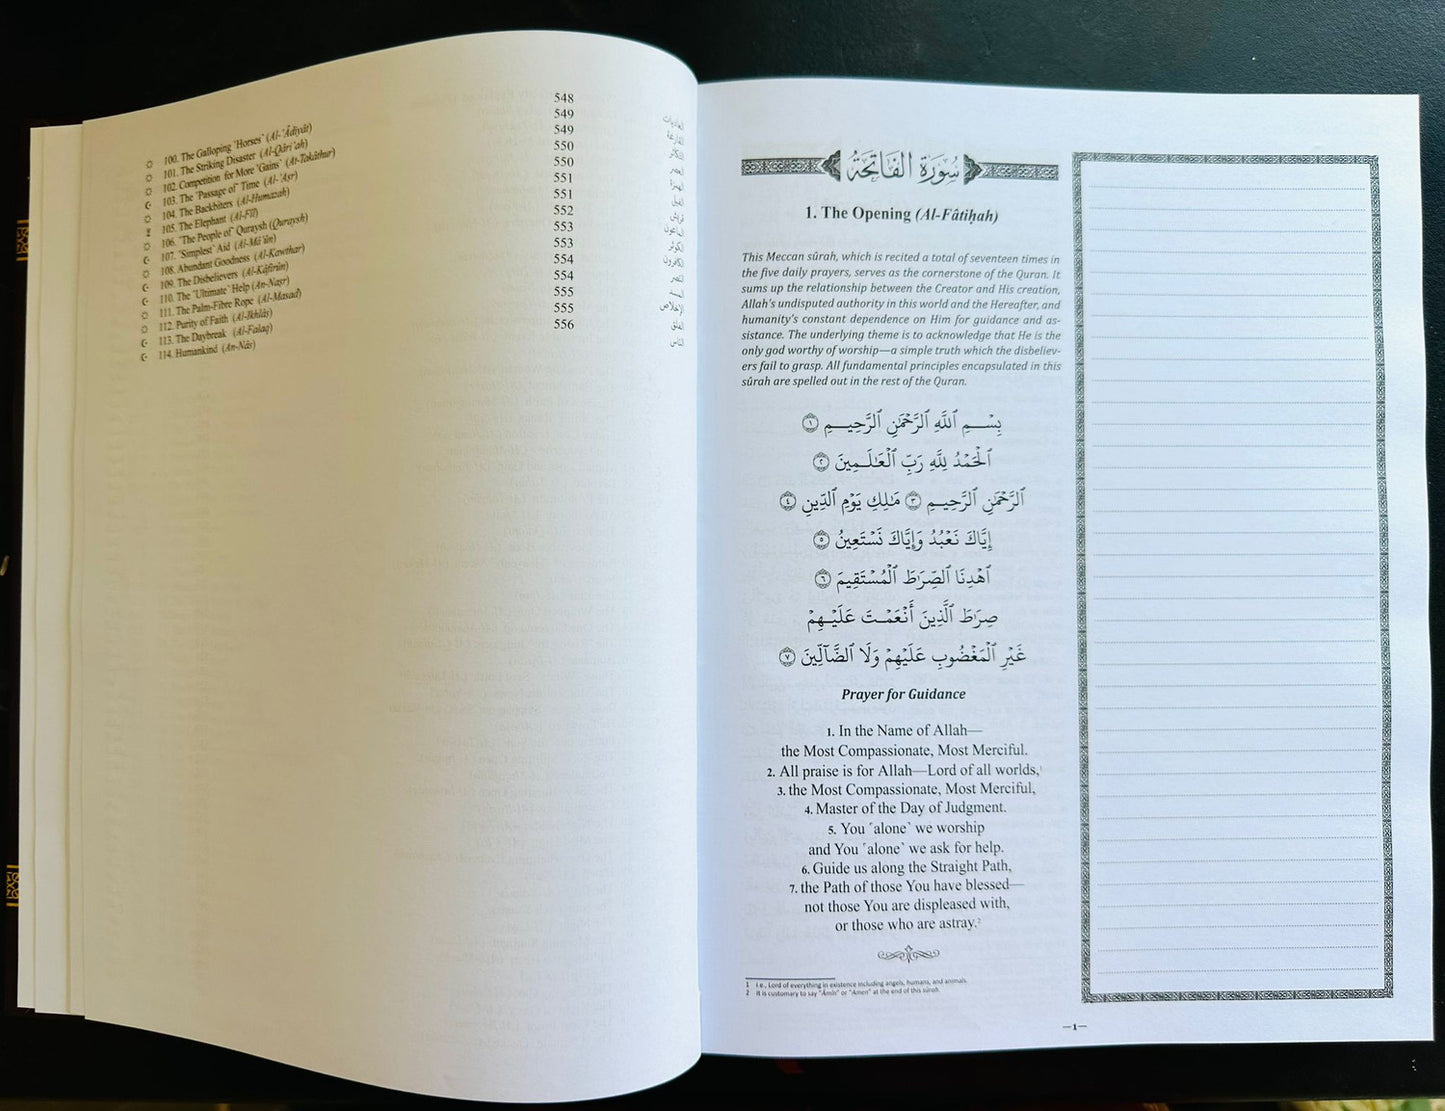 100. The Galloping ˹Horses˺ (Al-'Âdiyât) 548 العاديات
101. The Striking Disaster (Al-Qâri'ah) 549 القارعة
102. Competition for More ˹Gains˺ (At-Takâthur) 549 التكاثر
103. The ˹Passage of˺ Time (Al-'Aṣr) 550 العصر
104. The Backbiters (Al-Humazah) 550 الهمزة
105. The Elephant (Al-Fîl) 551 الفيل
106. ˹The People of˺ Quraysh (Quraysh) 551 قريش
107. ˹Simplest˺ Aid (Al-Mâ'ûn) 552 الماعون
108. Abundant Goodness (Al-Kawthar) 553 الكوثر
109. The Disbelievers (Al-Kâfirûn) 553 الكافرون
110. The ˹Ultimate˺ Help (An-Naṣr) 554 النصر
111. The Palm-Fibre Rope (Al-Masad) 554 المسد
112. Purity of Faith (Al-Ikhlâṣ) 555 الإخلاص
113. The Daybreak (Al-Falaq) 555 الفلق
114. Humankind (An-Nâs) 556 الناس
سُورَةُ الفَاتِحَةِ
1. The Opening (Al-Fâtiḥah)
This Meccan sûrah, which is recited a total of seventeen times in
the five daily prayers, serves as the cornerstone of the Quran. It
sums up the relationship between the Creator and His creation,
Allah's undisputed authority in this world and the Hereafter, and
humanity's constant dependence on Him for guidance and as-
sistance. The underlying theme is to acknowledge that He is the
only god worthy of worship—a simple truth which the disbeliev-
ers fail to grasp. All fundamental principles encapsulated in this
sûrah are spelled out in the rest of the Quran.
بِسْمِ ٱللَّهِ ٱلرَّحْمَٰنِ ٱلرَّحِيمِ ١
ٱلْحَمْدُ لِلَّهِ رَبِّ ٱلْعَٰلَمِينَ ٢
ٱلرَّحْمَٰنِ ٱلرَّحِيمِ ٣ مَٰلِكِ يَوْمِ ٱلدِّينِ ٤
إِيَّاكَ نَعْبُدُ وَإِيَّاكَ نَسْتَعِينُ ٥
ٱهْدِنَا ٱلصِّرَٰطَ ٱلْمُسْتَقِيمَ ٦
صِرَٰطَ ٱلَّذِينَ أَنْعَمْتَ عَلَيْهِمْ
غَيْرِ ٱلْمَغْضُوبِ عَلَيْهِمْ وَلَا ٱلضَّآلِّينَ ٧
Prayer for Guidance
1. In the Name of Allah—
the Most Compassionate, Most Merciful.
2. All praise is for Allah—Lord of all worlds,¹
3. the Most Compassionate, Most Merciful,
4. Master of the Day of Judgment.
5. You ˹alone˺ we worship
and You ˹alone˺ we ask for help.
6. Guide us along the Straight Path,
7. the Path of those You have blessed—
not those You are displeased with,
or those who are astray.²
1 i.e., Lord of everything in existence including angels, humans, and animals.
2 It is customary to say "Âmîn" or "Amen" at the end of this sûrah.
—1—